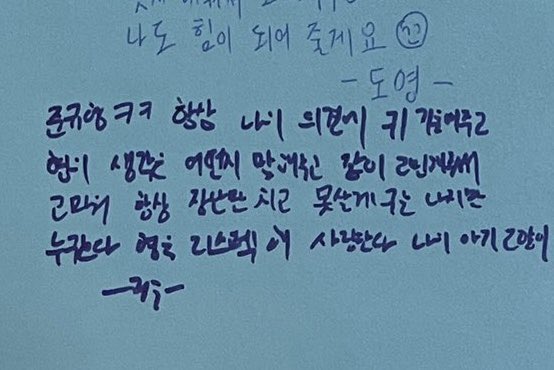 나도 힘이 되어 줄게요
- 도영 -
준규형 ㅋㅋ 항상 나의 의견에 귀 기울여주고
형의 생각은 어떤지 말해주고 같이 고민해줘서
고마워 항상 장난만 치고 못살게 구는 나지만
누구보다 형을 리스펙해 사랑한다 나의 아기 코알라